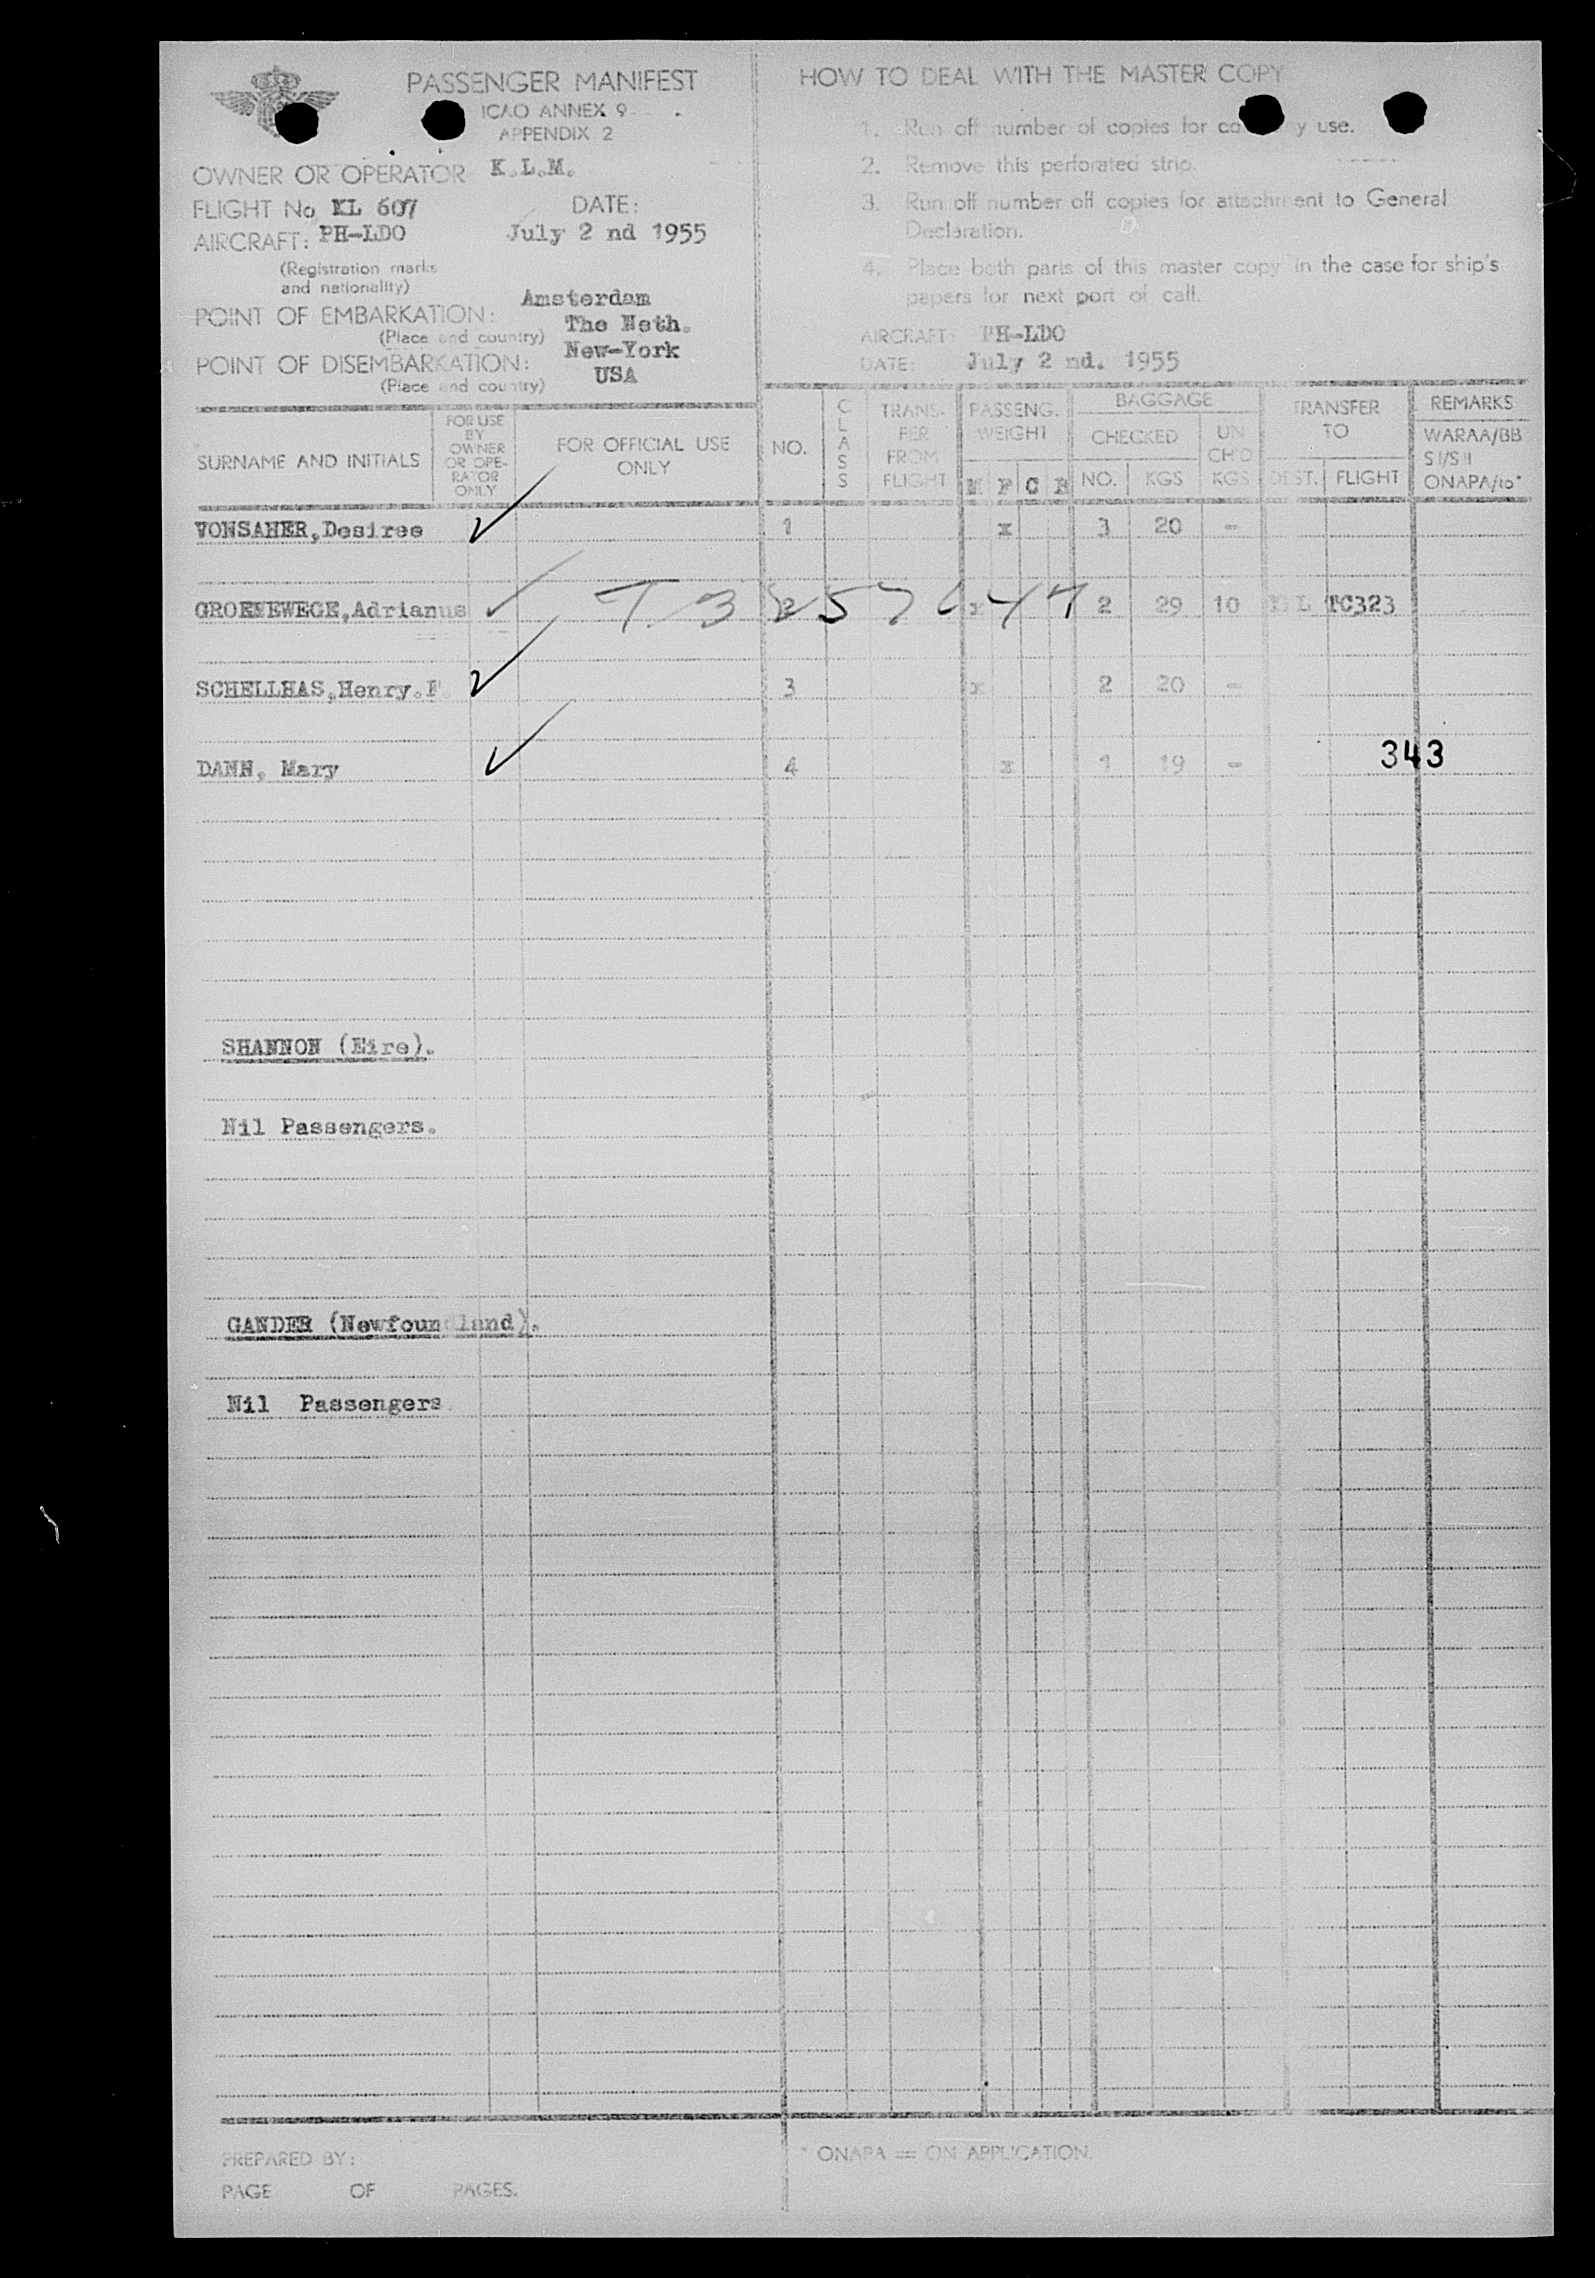 PASSENGER MANIFEST
ICAO ANNEX 9
APPENDIX 2
OWNER OR OPERATOR K.L.M.
FLIGHT No KL 607
DATE:
AIRCRAFT: PH-LDO
July 2 nd 1955
(Registration marks
and nationality)
POINT OF EMBARKATION: Amsterdam
(Place and country) The Neth.
POINT OF DISEMBARKATION: New-York
(Place and country) USA
HOW TO DEAL WITH THE MASTER COPY
1. Run off number of copies for y use.
2. Remove this perforated strip.
3. Run off number off copies for attachment to General
Declaration.
4. Place both parts of this master copy in the case for ship's
papers for next port of call.
AIRCRAFT: PH-LDO
DATE: July 2 nd. 1955
SURNAME AND INITIALS
FOR USE
BY
OWNER
OR OPE-
RATOR
ONLY
FOR OFFICIAL USE
ONLY
NO.
CLASS
TRANS-
FER
FROM
FLIGHT
PASSENG.
WEIGHT
M F C B
BAGGAGE
CHECKED
NO. KGS
UN
CH'D
KGS
TRANSFER
TO
DEST. FLIGHT
REMARKS
WARAA/BB
S I/S II
ONAPA/to*
VONSAHER,Desiree 1 x 3 20 -
GROENEWEGE,Adrianus 2 x 2 29 10 TC323
SCHELLHAS,Henry. 3 x 2 20 -
DANN, Mary 4 x 1 19 -
343
SHANNON (Eire).
Nil Passengers.
GANDER (Newfoundland).
Nil Passengers
PREPARED BY:
PAGE OF PAGES.
* ONAPA = ON APPLICATION.